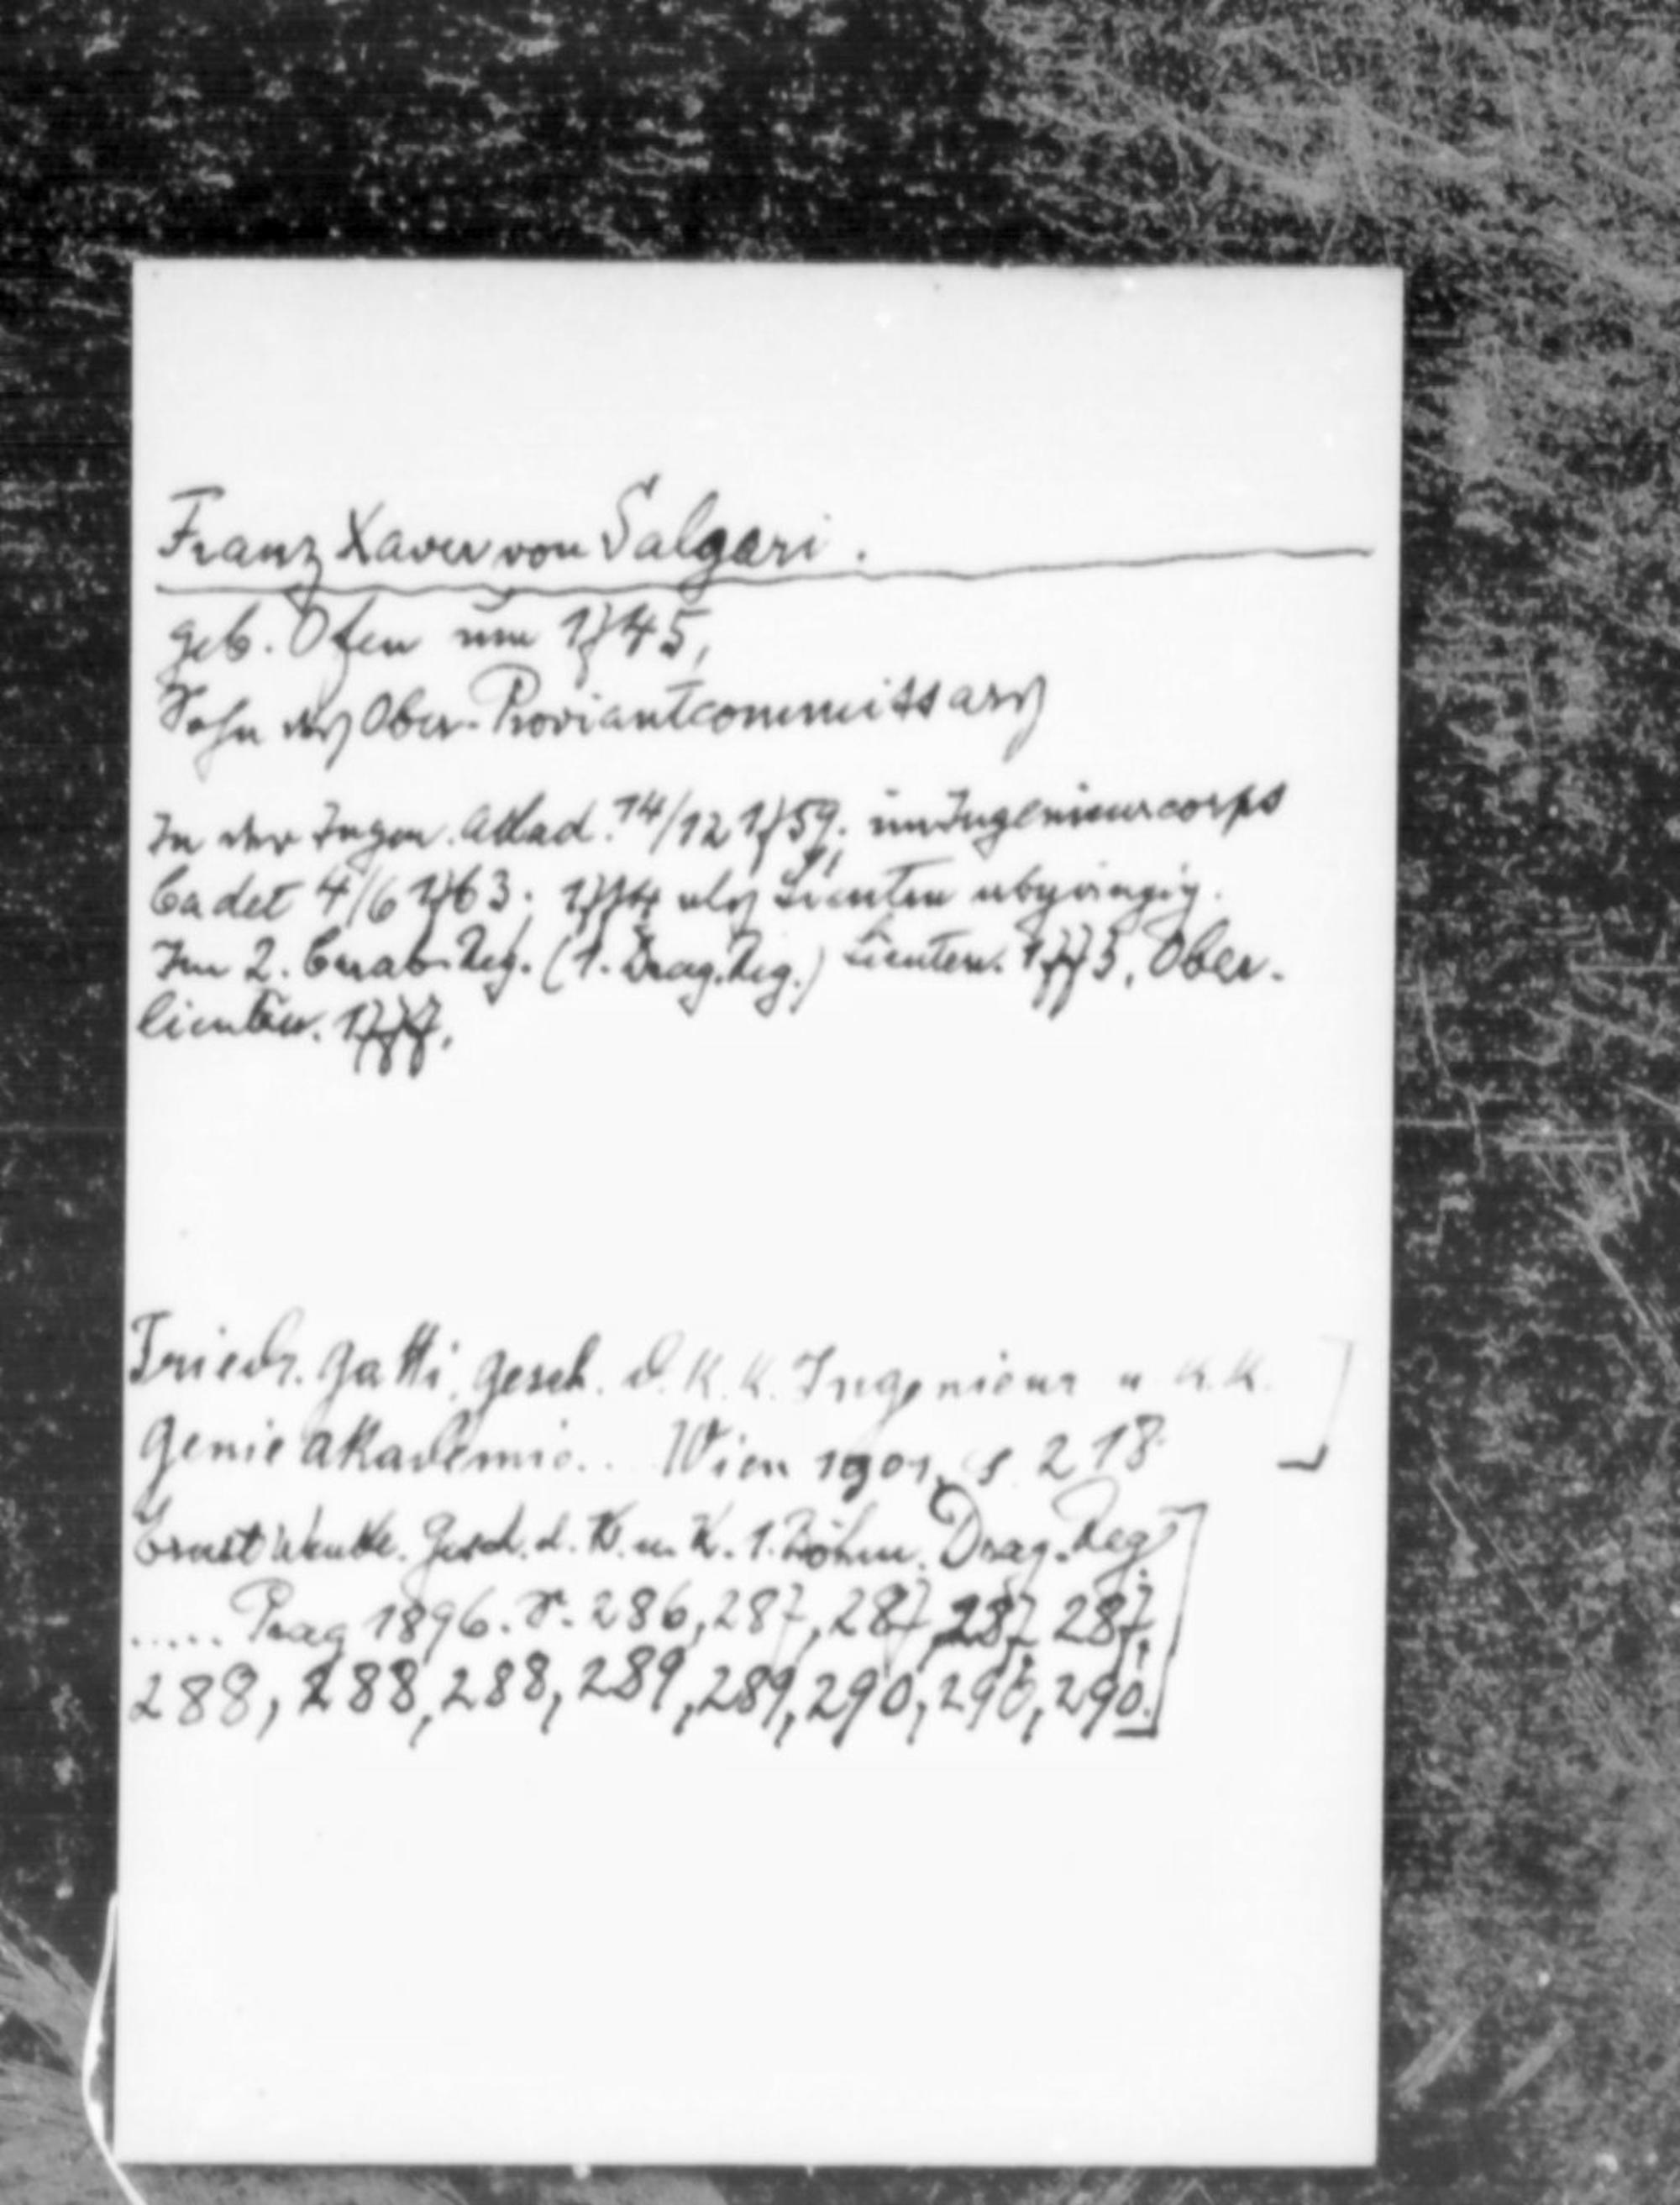 Franz Xaver von Salgari.
geb. Ofen um 1745,
Sohn des Ober-Proviantcommissars
In der Ingen. Akad. 14/12 1759; im Ingenieurcorps
Cadet 4/6 1763; 1774 als Lieuten abgängig.
Im 2. Carab. Reg. (1. Drag. Reg.) Lieuten. 1773, Ober-
lieuten. 1777.
Friedr. Gatti, Gesch. d. K. K. Ingenieur u K. K.
Genieakademie.. Wien 1901, S 218
Ernst Gesch. d. K. u. K. 1. Böhm. Drag. Reg
..... Prag 1896. S. 286, 287, 287, 287, 287,
288, 288, 288, 289, 289, 290, 290, 290.